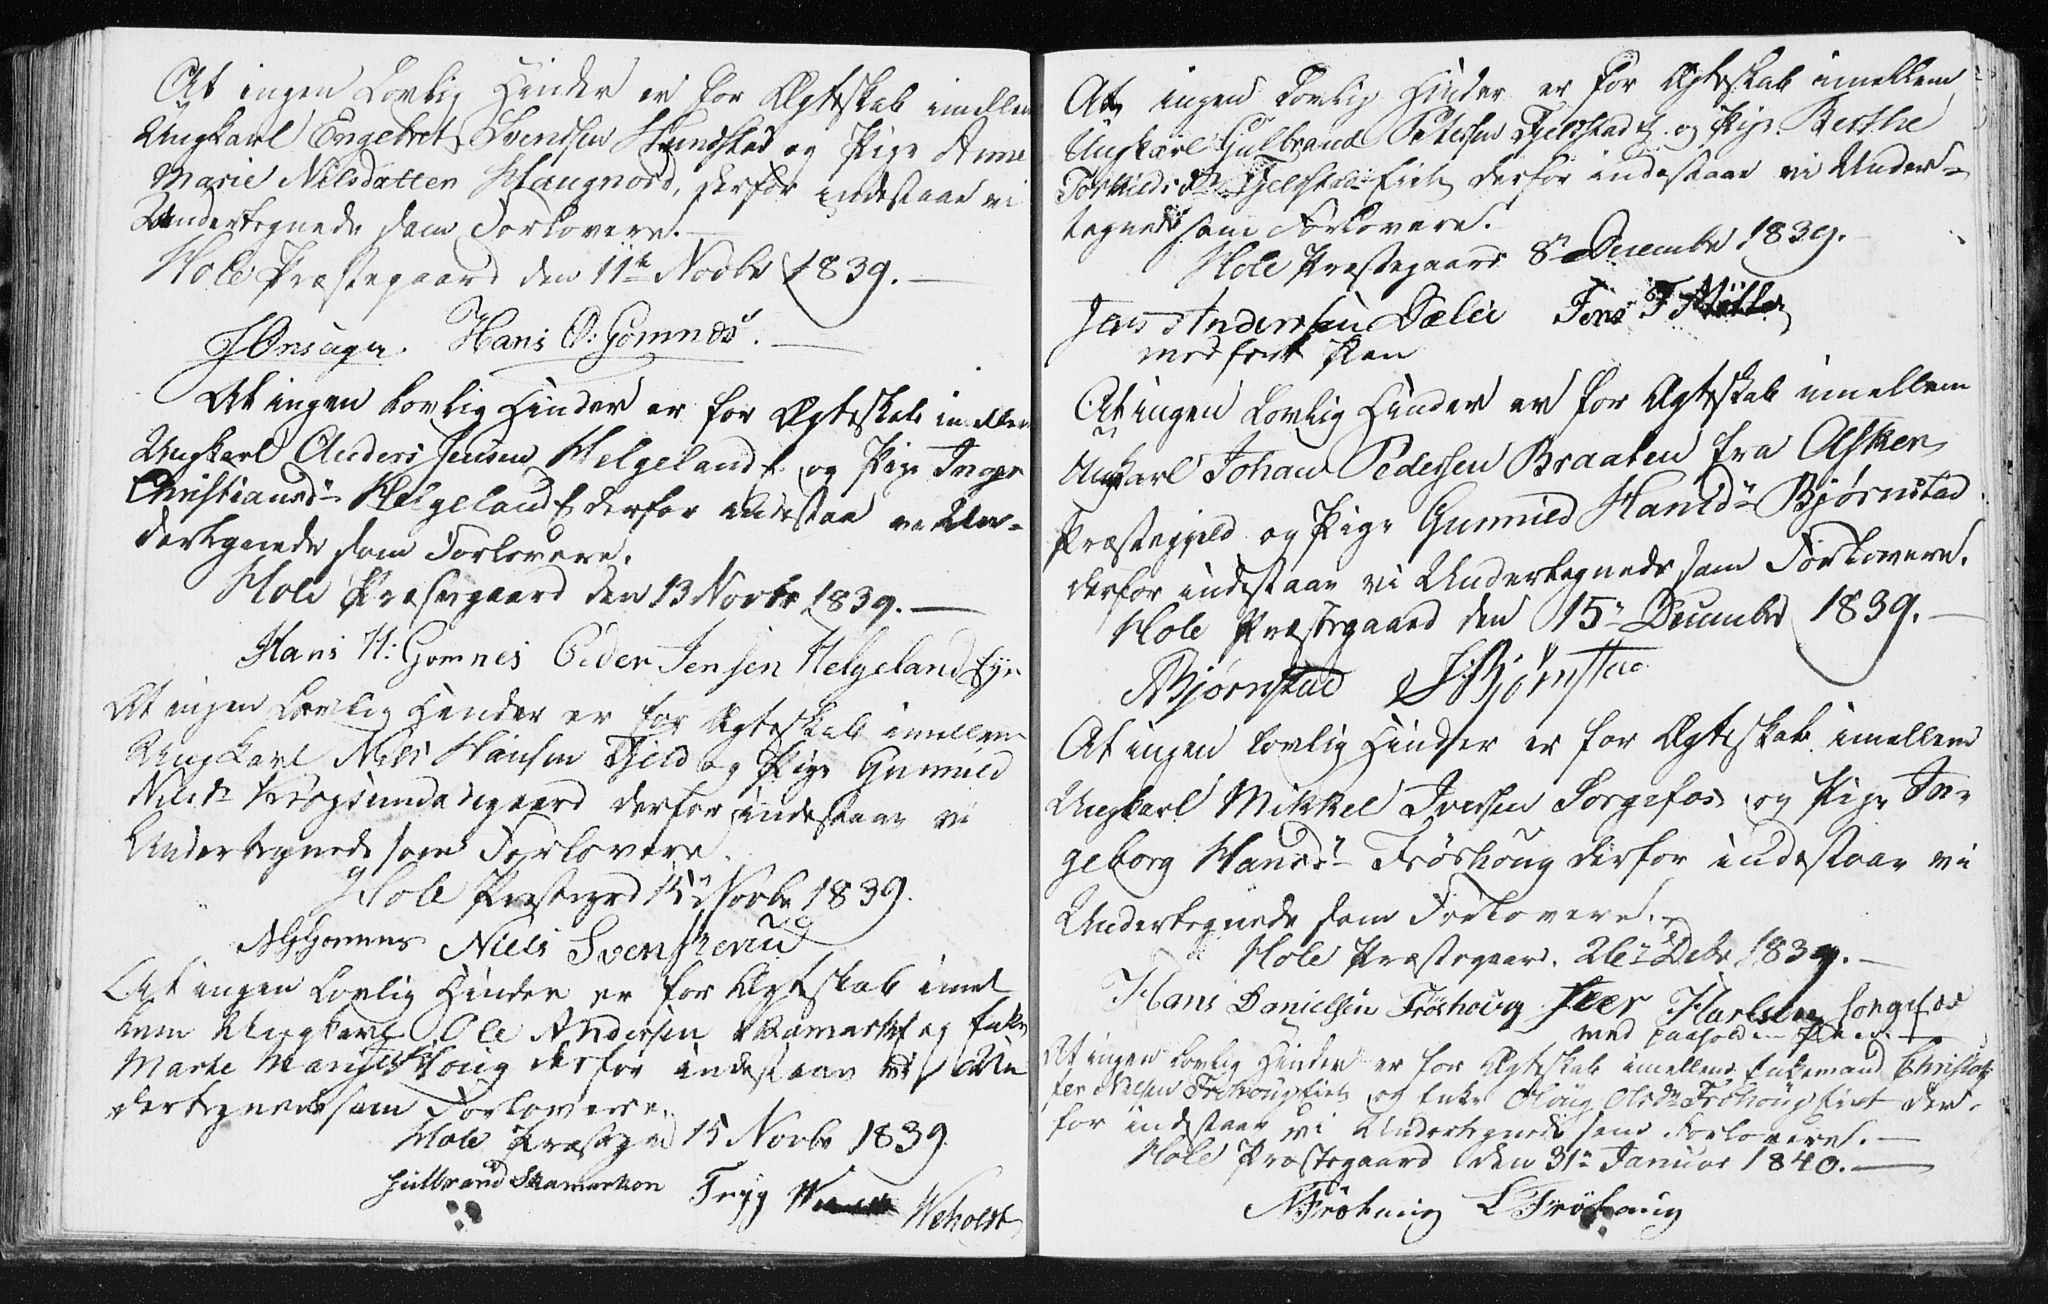 At ingen Lovlig Hinder er for Ægteskab imellem
Ungkarl Engebret Svendsen Hundstad og Pige Anne
Marie Nilsdatter Haugnord, derfor indestaae vi
Undertegnede som Forlovere.
Hole Præstegaard den 11te Novbr 1839.
Hans O: Gomnes.
At ingen Lovlig Hinder er for Ægteskab imellem
Ungkarl Anders Jensen Helgeland og Pige Inger
Christiansdr Helgeland derfor indestaae vi Un-
dertegnede som Forlovere.
Hole Præstegaard den 13 Novbr 1839.
Hans H: Gomnes Peder Jensen Helgeland Eje
At ingen Lovlig Hinder er for Ægteskab imellem
Ungkarl Niels Hansen Fjeld og Pige Gunnild
Nilsdr Krogsundødegaard derfor indestaae vi
Undertegnede som Forlovere
Hole Præstegrd 15 Novbr 1839.
Niels Svenskerud
At ingen Lovlig Hinder er for Ægteskab imel
lem Ungkarl Ole Andersen og Enke
Marte Houg derfor indestaae vi Un
dertegnede som Forlovere.
Hole Præstegrd 15 Novbr 1839.
Gulbrand Skamarken Trÿg Weholdt
At ingen Lovlig Hinder er for Ægteskab imellem
Ungkarl Gulbrand Petersen Fjeldstad og Pige Berthe
Torkildsdr Fjeldstad derfor indestaae vi Under-
tegnede som Forlovere.
Hole Præstegaard 8de December 1839.
Jens Andersen Dælie
med ført Pen
At ingen Lovlig Hinder er for Ægteskab imellem
Ungkarl Johan Pedersen Braaten fra Asker
Præstegjeld og Pige Gunnild Hansdr Bjørnstad
derfor indestaae vi Undertegnede som Forlovere.
Hole Præstegaard den 15de December 1839.
Bjørnstad Bjørnstad
At ingen Lovlig Hinder er for Ægteskab imellem
Ungkarl Mikkel Iversen Sørgefos og Pige In-
geborg Hansdr Frøshoug derfor indestaae vi
Undertegnede som Forlovere.
Hole Præstegaard 26de Debr 1839.
Hans Danielsen Frøshoug Iver Sørgefos
med paaholden Pen
At ingen Lovlig Hinder er for Ægteskab imellem Enkemand Christof-
fer Nilsen Fröhoug og Enke Oloug Olsdr Fröhoug der-
for indestaae vi Undertegnede som Forlovere.
Hole Præstegaard den 31te Januar 1840.
N Fröhoug L Fröhoug